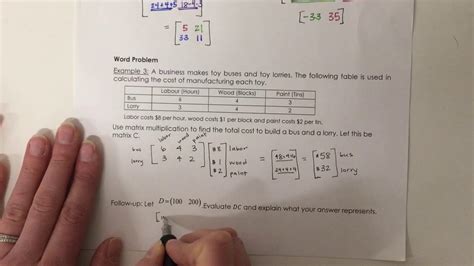 = [ 5 21
33 11 ]
[-33 35]
Word Problem
Example 3: A business makes toy buses and toy lorries. The following table is used in
calculating the cost of manufacturing each toy.
Labour (Hours) Wood (Blocks) Paint (Tins)
Bus 6 4 3
Lorry 3 4 2
Labor costs $8 per hour, wood costs $1 per block and paint costs $2 per tin.
Use matrix multiplication to find the total cost to build a bus and a lorry. Let this be
matrix C.
labor wood paint
bus [ 6 4 3 [ $8 labor
lorry 3 4 2 ] $1 wood
$2 ] paint
= [ 48+4+6
24+4+4 ]
= [ $58 bus
$32 ] lorry
Follow-up: Let D = (100 200). Evaluate DC and explain what your answer represents.